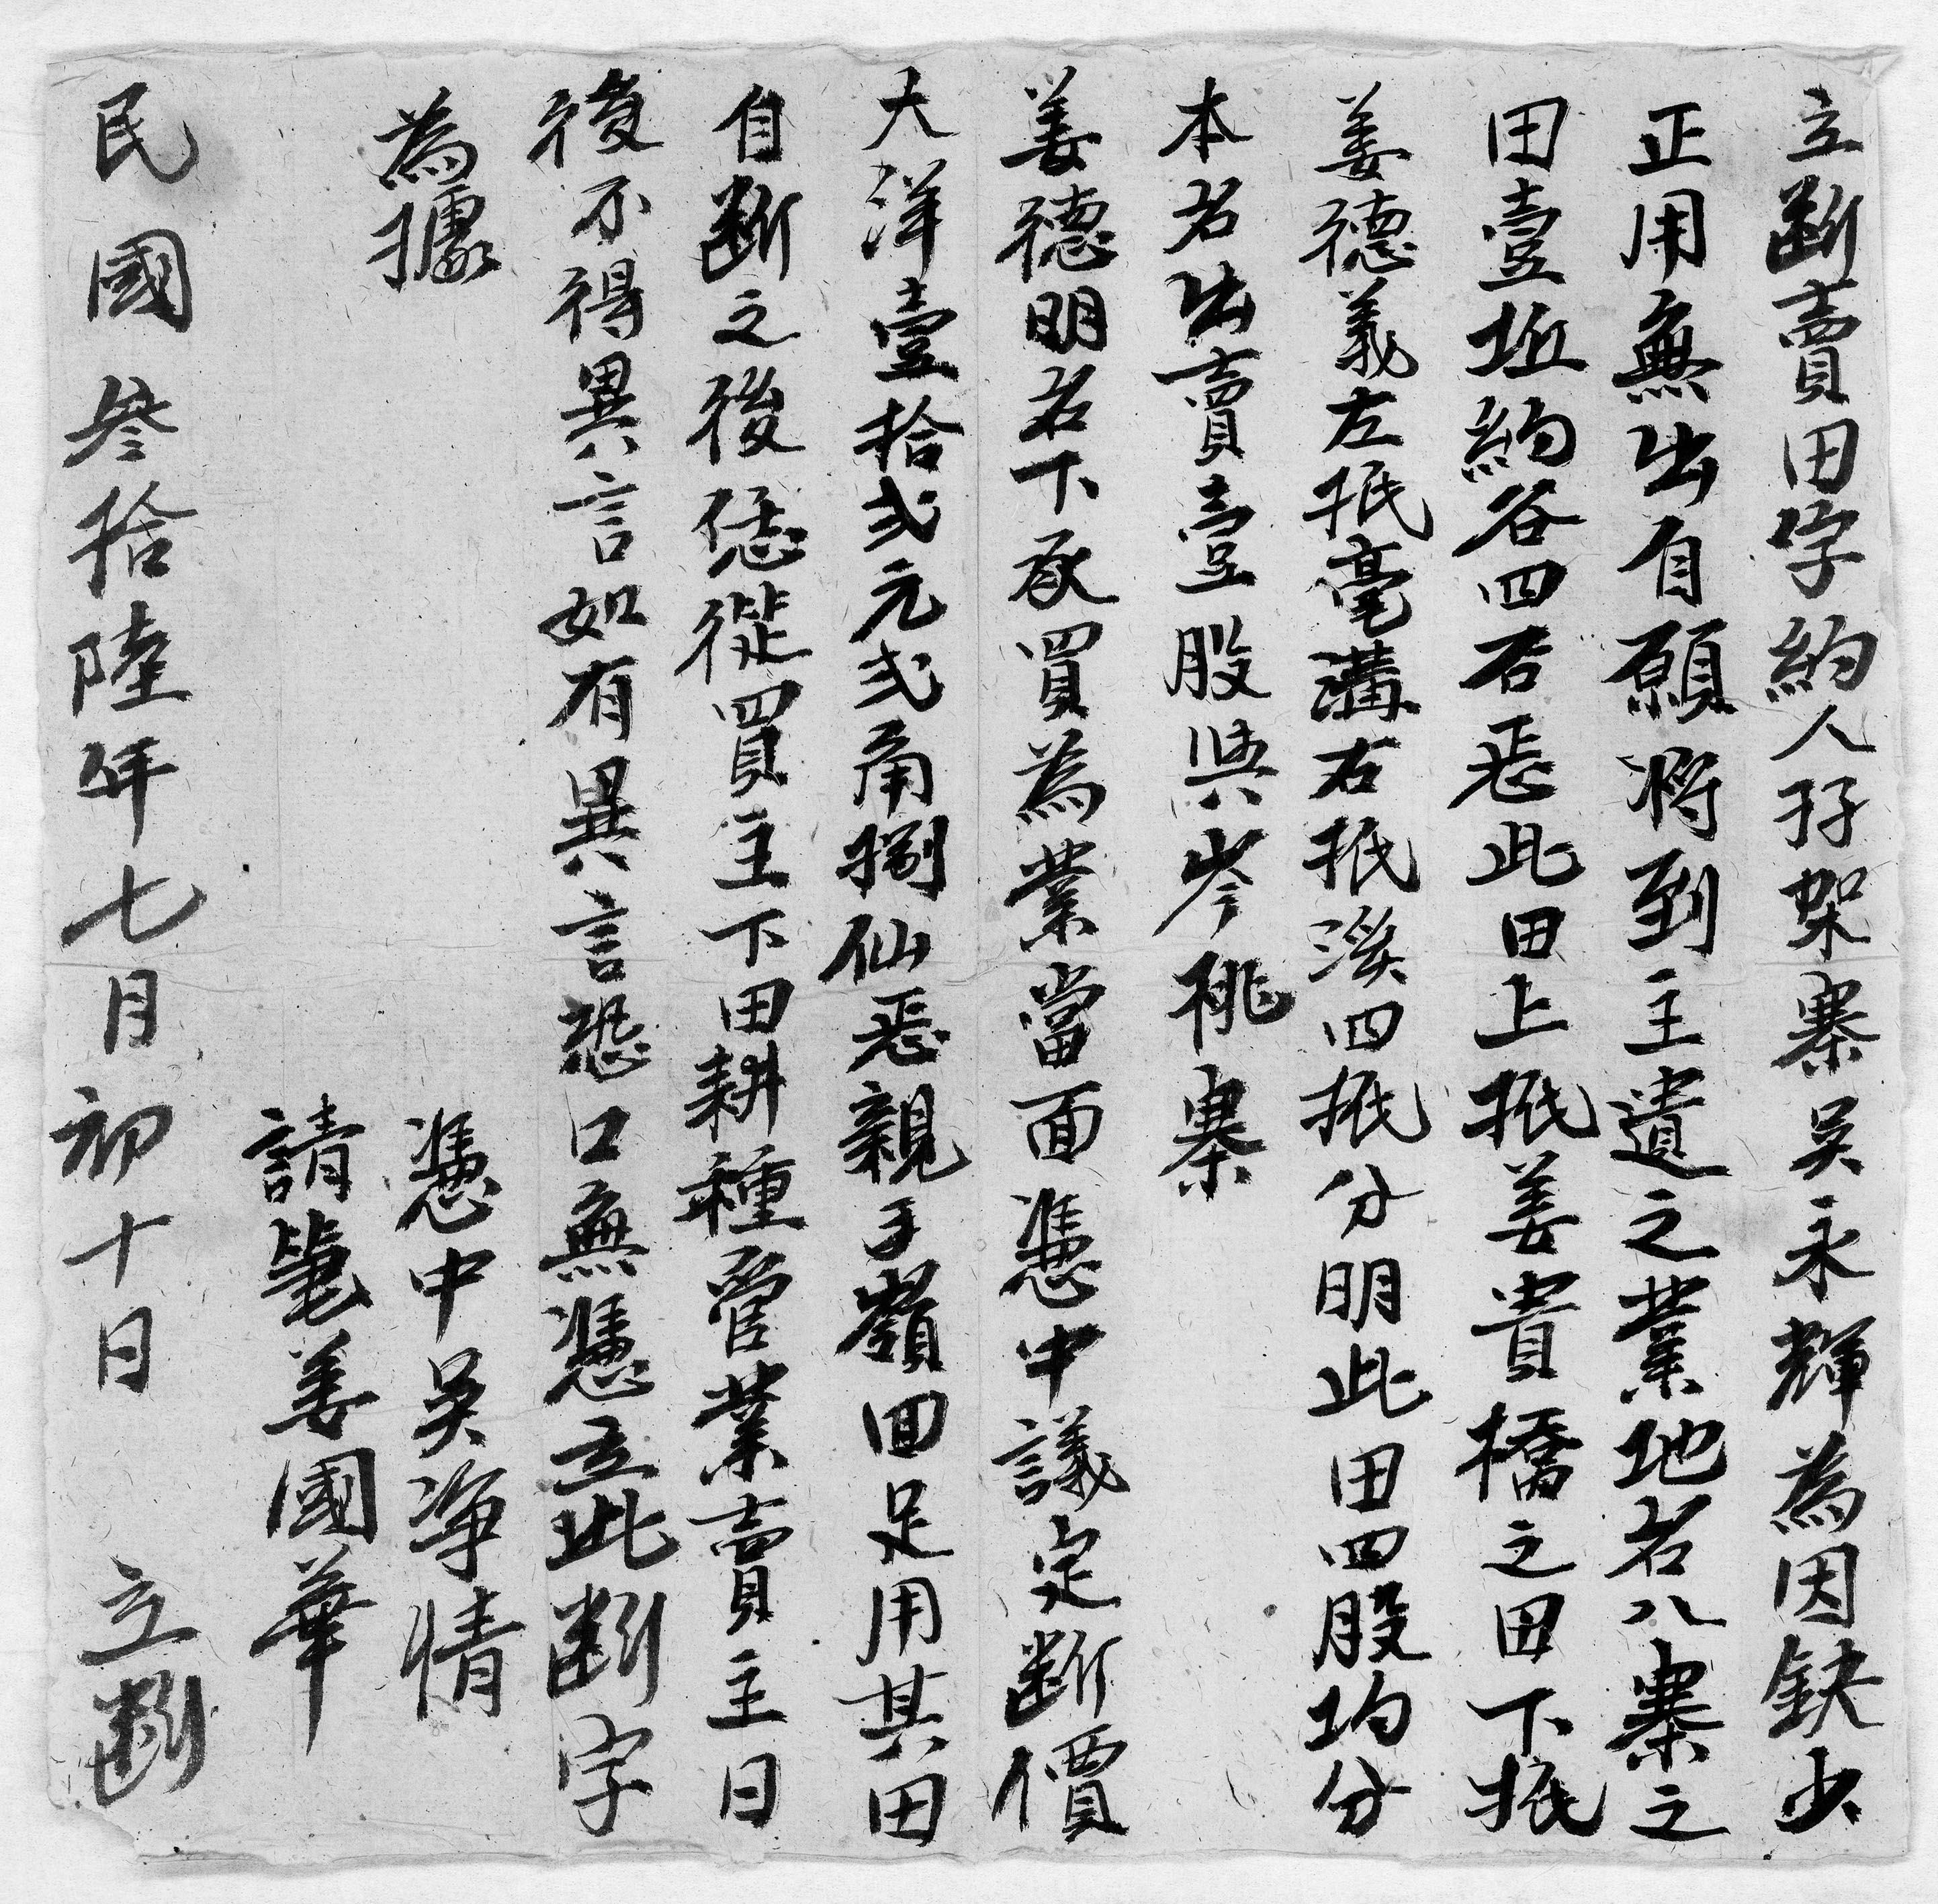 立斷賣田字約人孖架寨吴永輝為因缺少
正用無出自願将到主遺之業地名八寨之
田壹坵約谷四石悉此田上抵姜貴橋之田下抵
姜德義左抵毫溝右抵溪四抵分明此田四股均分
本名出賣壹股與岑祧寨
姜德明名下承買為業當面憑中議定斷價
大洋壹拾弍元弍角捌仙悉親手嶺回足用其田
自斷之後恁從買主下田耕種管業賣主日
後不得異言如有異言恐口無憑立此斷字
為據
憑中吴净情
請筆姜國華
民國叁拾陸年七月初十日 立斷